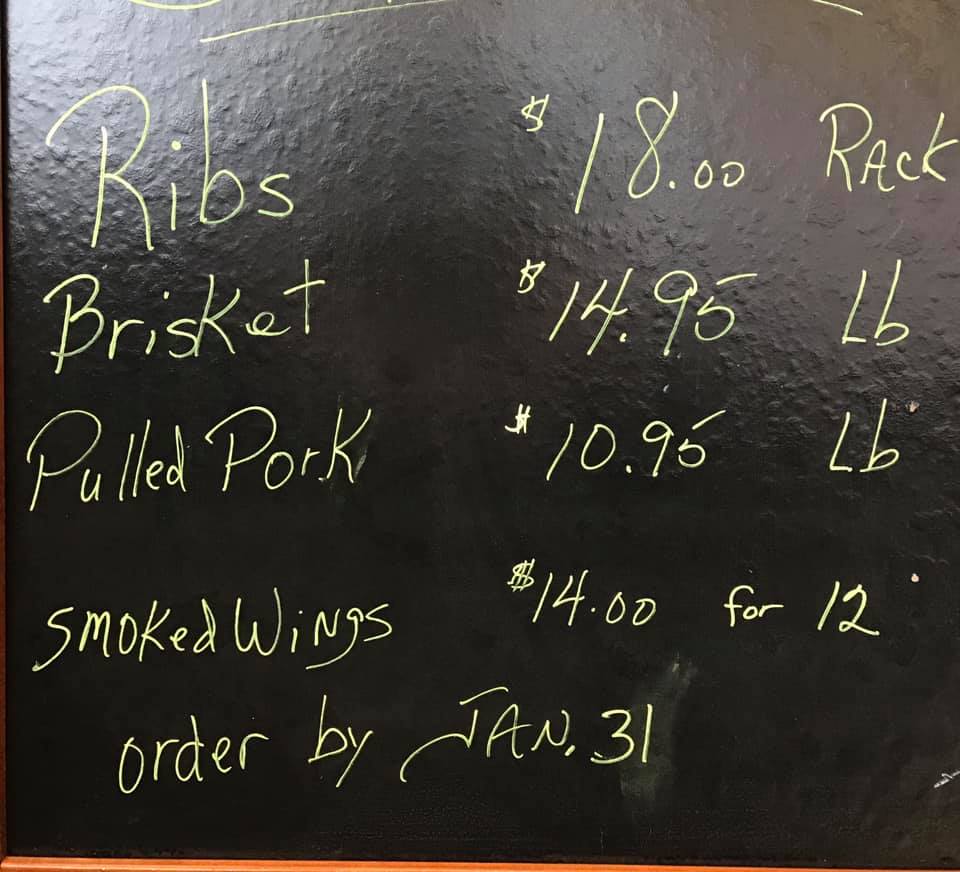 Ribs $18.00 Rack
Brisket $14.95 Lb
Pulled Pork $10.95 Lb
Smoked Wings $14.00 for 12
order by JAN. 31